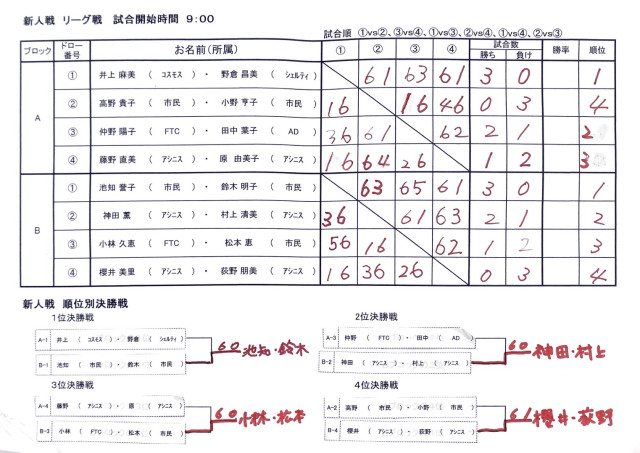 新人戦 リーグ戦 試合開始時間 9:00
試合順 ①vs②、③vs④、①vs③、②vs④、①vs④、②vs③
ブロック ドロー番号 お名前(所属) ① ② ③ ④ 試合数 勝ち 負け 勝率 順位
A
① 井上 麻美 ( コスモス ) ・ 野倉 昌美 ( シェルティ ) 61 63 61 3 0 1
② 高野 貴子 ( 市民 ) ・ 小野 亨子 ( 市民 ) 16 16 46 0 3 4
③ 仲野 陽子 ( FTC ) ・ 田中 葉子 ( AD ) 36 61 62 2 1 2
④ 藤野 直美 ( アシニス ) ・ 原 由美子 ( アシニス ) 16 64 26 1 2 3
B
① 池知 誉子 ( 市民 ) ・ 鈴木 明子 ( 市民 ) 63 65 61 3 0 1
② 神田 薫 ( アシニス ) ・ 村上 清美 ( アシニス ) 36 61 63 2 1 2
③ 小林 久恵 ( FTC ) ・ 松本 恵 ( 市民 ) 56 16 62 1 2 3
④ 櫻井 美里 ( アシニス ) ・ 荻野 朋美 ( アシニス ) 16 36 26 0 3 4
新人戦 順位別決勝戦
1位決勝戦
A-1 井上 ( コスモス ) ・ 野倉 ( シェルティ )
60 池知・鈴木
B-1 池知 ( 市民 ) ・ 鈴木 ( 市民 )
2位決勝戦
A-3 仲野 ( FTC ) ・ 田中 ( AD )
60 神田・村上
B-2 神田 ( アシニス ) ・ 村上 ( アシニス )
3位決勝戦
A-4 藤野 ( アシニス ) ・ 原 ( アシニス )
60 小林・松本
B-3 小林 ( FTC ) ・ 松本 ( 市民 )
4位決勝戦
A-2 高野 ( 市民 ) ・ 小野 ( 市民 )
61 櫻井・荻野
B-4 櫻井 ( アシニス ) ・ 荻野 ( アシニス )